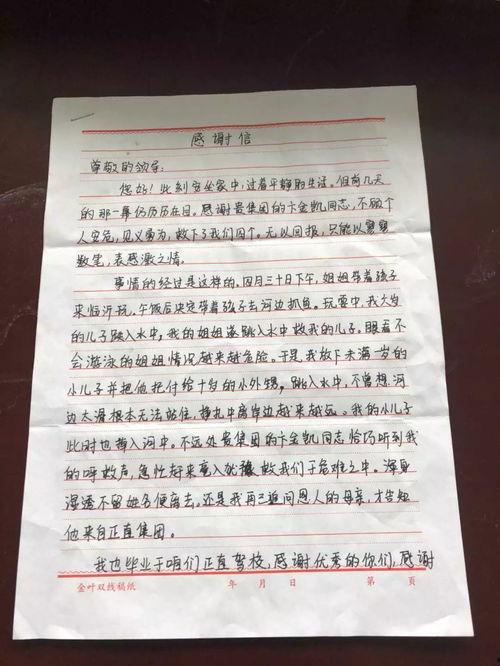 感谢信
尊敬的领导:
您好!此刻安坐家中,过着平静的生活。但前几天
的那一幕仍历历在目。感谢贵集团的卞金凯同志,不顾个
人安危,见义勇为,救下了我们四个。无以回报,只能以寥寥
数笔,表感激之情。
事情的经过是这样的。四月三十日下午,姐姐带着孩子
来临沂玩。午饭后决定带着孩子去河边抓鱼。玩耍中,我大岁
的儿子跳入水中,我的姐姐遂跳入水中救我的儿子。眼看不
会游泳的姐姐情况越来越危险。于是,我放下未满一岁的
小儿子并把他托付给十岁的小外甥,跳入水中,不曾想河
边太滑根本无法站住,挣扎中离岸边越来越远。我的小儿子
此时也掉入河中。不远处贵集团的卞金凯同志恰巧听到我
的呼救声,急忙赶来毫入救我们于危难之中。浑身
湿透不留姓名便离去,还是我再三追问恩人的母亲,才告知
他来自正直集团。
我也毕业于咱们正直驾校,感谢优秀的你们,感谢
金叶双线稿纸 年 月 日 第 页